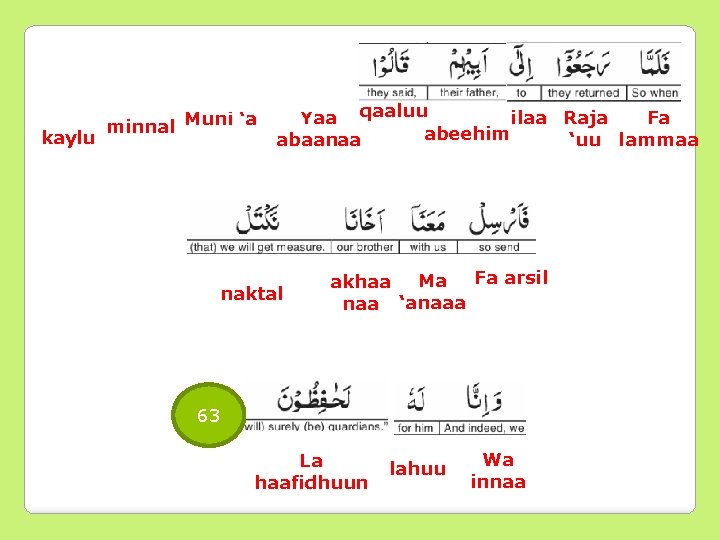 فَلَمَّا رَجَعُوٓا إِلَىٰٓ أَبِيهِمْ قَالُوا
they said, their father, to they returned So when
kaylu minnal Muni ‘a Yaa abaanaa qaaluu abeehim ilaa Raja ‘uu Fa lammaa
فَأَرْسِلْ مَعَنَآ أَخَانَا نَكْتَلْ
(that) we will get measure. our brother with us so send
naktal akhaa naa Ma ‘anaaa Fa arsil
وَإِنَّا لَهُ لَحَٰفِظُونَ
63
will) surely (be) guardians.” for him And indeed, we
La haafidhuun lahuu Wa innaa